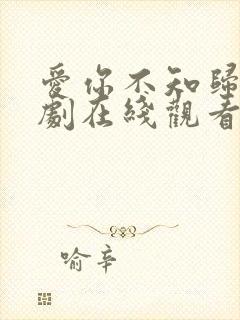 愛你不知歸
劇在綫觀看
喻辛